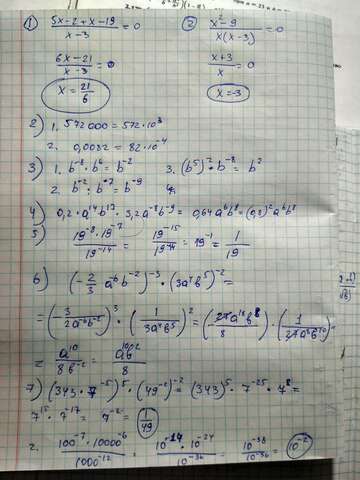 ① (5x-2+x-19)/(x-3) = 0
② (x²-9)/(x(x-3)) = 0
(6x-21)/(x-3) = 0
(x+3)/x = 0
x = 21/6
x = -3
2) 1. 572 000 = 572·10³
2. 0,0082 = 82·10⁻⁴
3) 1. b⁻⁸·b⁶ = b⁻² 3. (b⁵)⁻²·b⁻⁸ = b²
2. b⁻²:b⁺⁷ = b⁻⁹
4) 0,2·a¹⁴b¹⁷·3,2a⁻⁸b⁻⁹ = 0,64a⁶b⁸ = (0,8)²a⁶b⁸
5) (19⁻⁸·19⁻⁷)/19⁻¹⁴ = 19⁻¹⁵/19⁻¹⁴ = 19⁻¹ = 1/19
6) (-2/3 a⁻⁶b⁻²)⁻³·(3a⁴b⁵)⁻² =
= (-3/(2a⁻⁶b⁻²))³·(1/(3a⁴b⁵))²
7) (343·7⁻⁵)⁵·(49⁻²)⁻² = (343)⁵·7⁻²⁵·7⁸ =
7¹⁵·7⁻¹⁷ = 7⁻² = 1/49
2. (100⁻⁷·10000⁻⁶)/1000⁻¹² = (10⁻¹⁴·10⁻²⁴)/10⁻³⁶ = 10⁻³⁸/10⁻³⁶ = 10⁻²